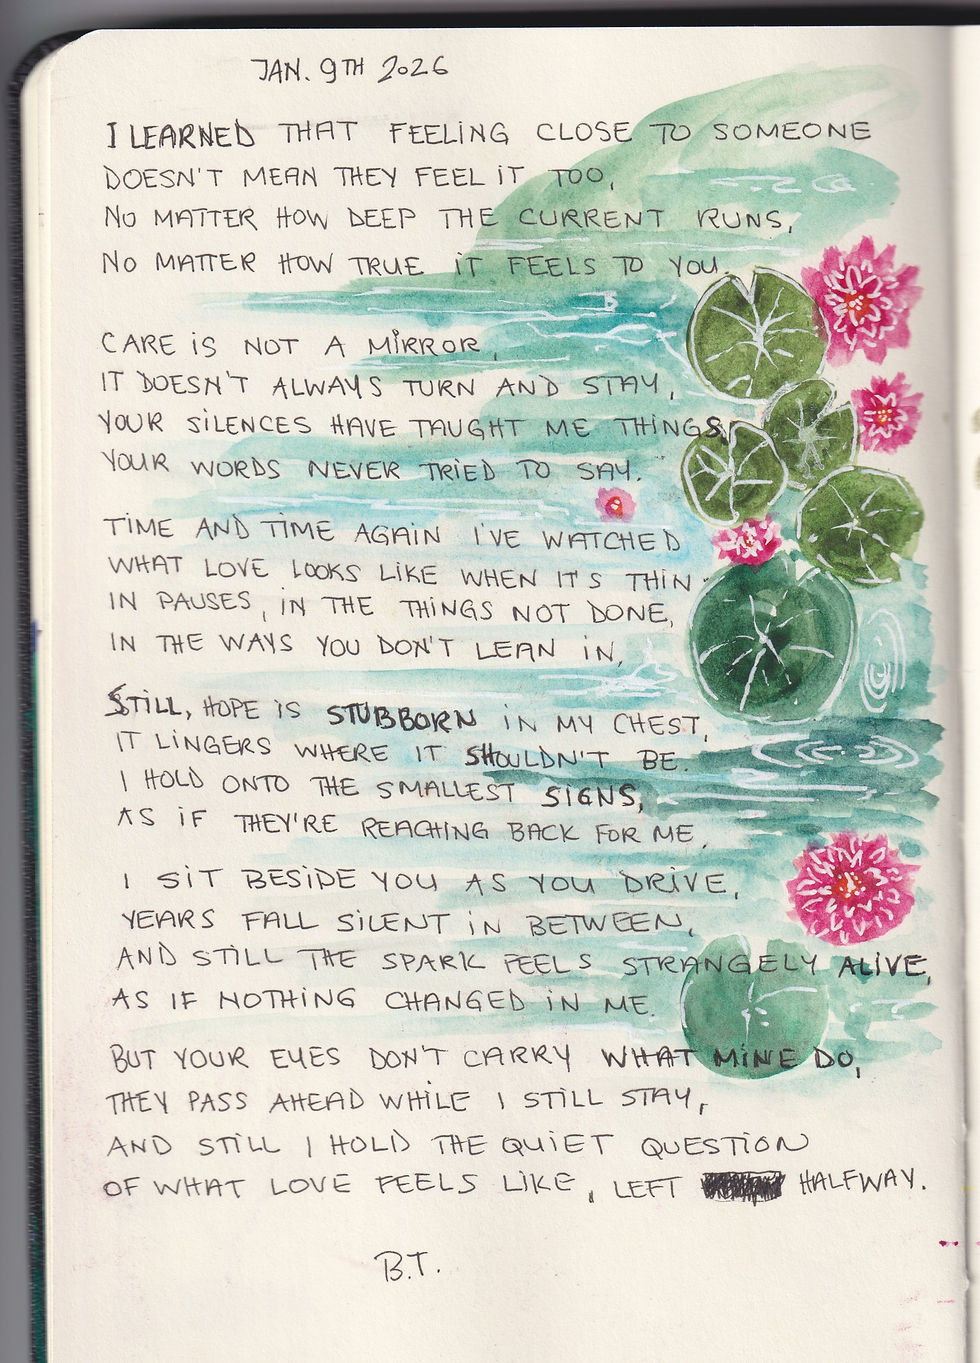 JAN. 9TH 2026
I LEARNED THAT FEELING CLOSE TO SOMEONE
DOESN'T MEAN THEY FEEL IT TOO,
NO MATTER HOW DEEP THE CURRENT RUNS,
NO MATTER HOW TRUE IT FEELS TO YOU.
CARE IS NOT A MIRROR,
IT DOESN'T ALWAYS TURN AND STAY,
YOUR SILENCES HAVE TAUGHT ME THINGS
YOUR WORDS NEVER TRIED TO SAY.
TIME AND TIME AGAIN I'VE WATCHED
WHAT LOVE LOOKS LIKE WHEN IT'S THIN
IN PAUSES, IN THE THINGS NOT DONE,
IN THE WAYS YOU DON'T LEAN IN,
STILL, HOPE IS STUBBORN IN MY CHEST,
IT LINGERS WHERE IT SHOULDN'T BE.
I HOLD ONTO THE SMALLEST SIGNS,
AS IF THEY'RE REACHING BACK FOR ME.
I SIT BESIDE YOU AS YOU DRIVE,
YEARS FALL SILENT IN BETWEEN,
AND STILL THE SPARK FEELS STRANGELY ALIVE,
AS IF NOTHING CHANGED IN ME.
BUT YOUR EYES DON'T CARRY WHAT MINE DO,
THEY PASS AHEAD WHILE I STILL STAY,
AND STILL I HOLD THE QUIET QUESTION
OF WHAT LOVE FEELS LIKE, LEFT HALFWAY.
B.T.